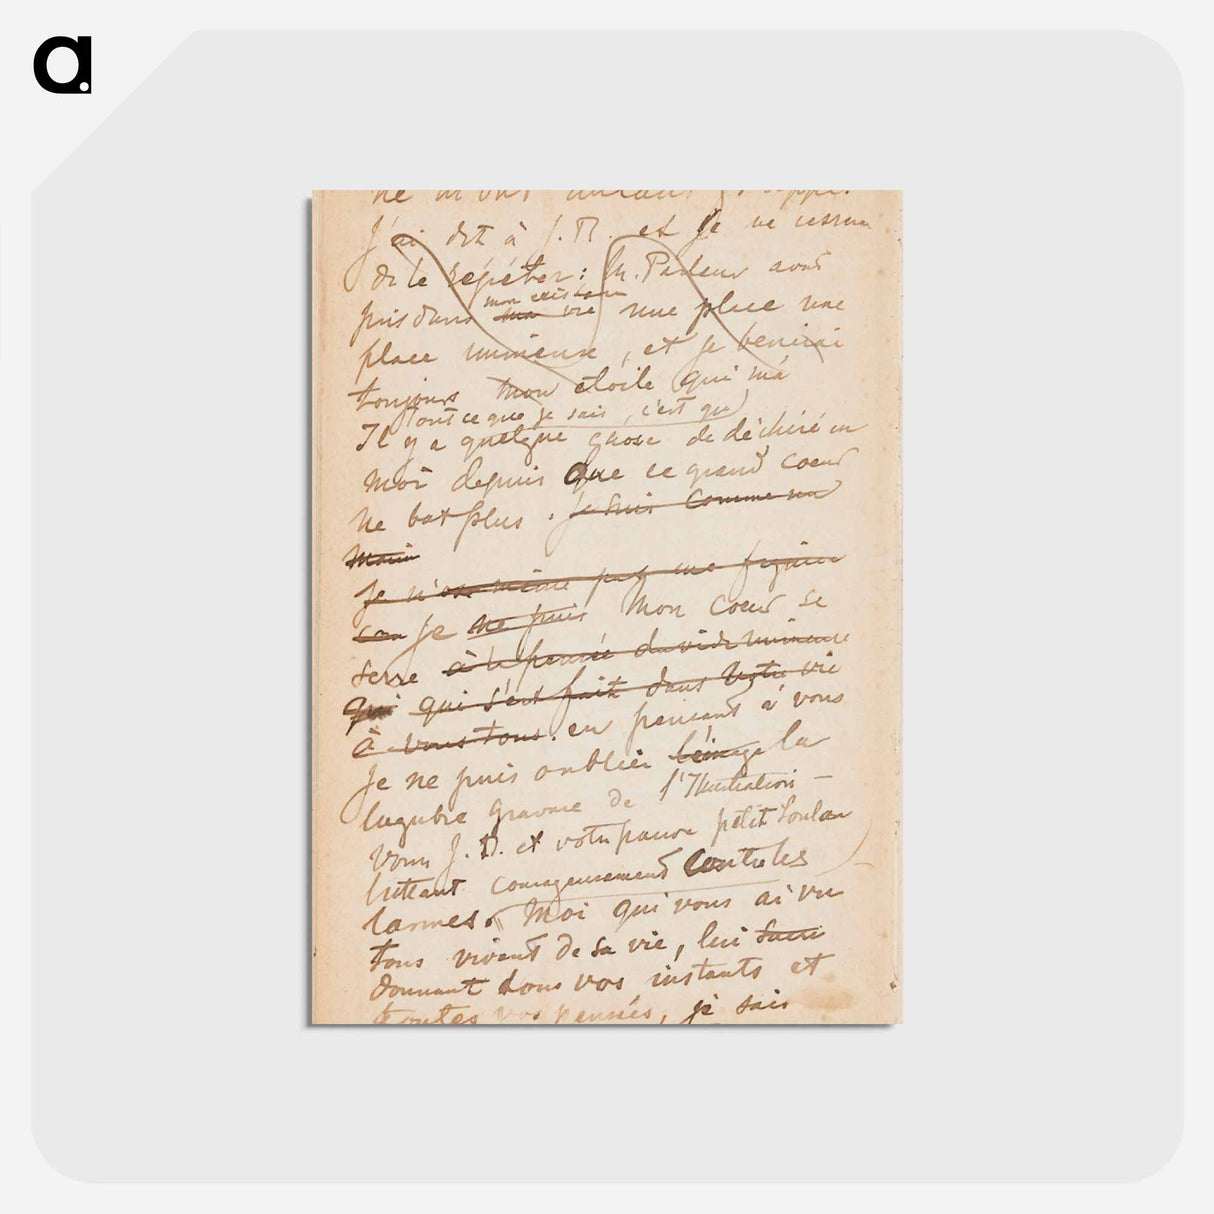 a.
ne m'ont
J'ai dit à J. B. et je ne cesserai
de le répéter : M. Pasteur avait
pris dans ma vie mon existence une place une
place immense, et je bénirai
toujours mon étoile qui m'a
Tout ce que je sais, c'est qu'
Il y a quelque chose de déchiré en
moi depuis que ce grand coeur
ne bat plus. je suis comme un
marin
Je n'ose même pas me figurer
Je ne puis Mon coeur se
serre à la pensée du vide immense
qui qui s'est fait dans votre vie
à vous tous. en pensant à vous
Je ne puis oublier la
lugubre gravure de l'Illustration —
vous J. B. et votre pauvre petit
luttant courageusement contre les
larmes. Moi qui vous ai vu
tous vivant de sa vie, lui
donnant tous vos instants et
toutes vos pensées, je sais